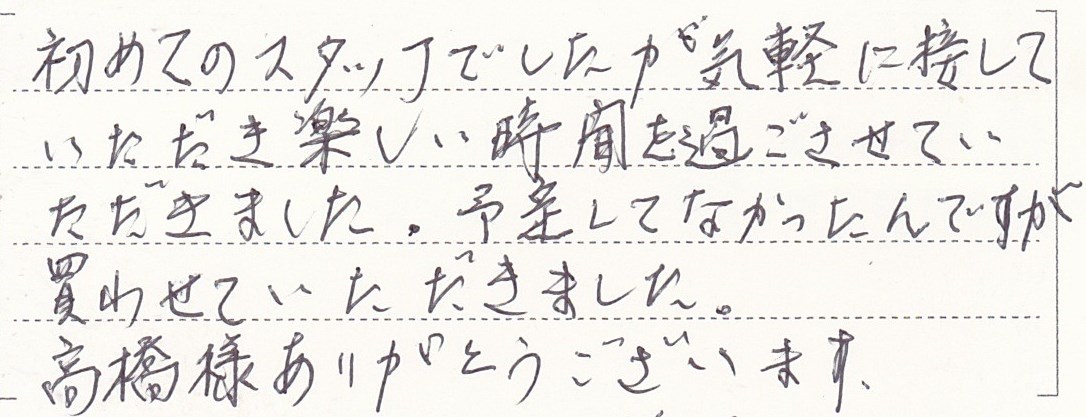 初めてのスタッフでしたが気軽に接して
いただき楽しい時間を過ごさせてい
ただきました。予定してなかったんですが
買わせていただきました。
高橋様ありがとうございます。